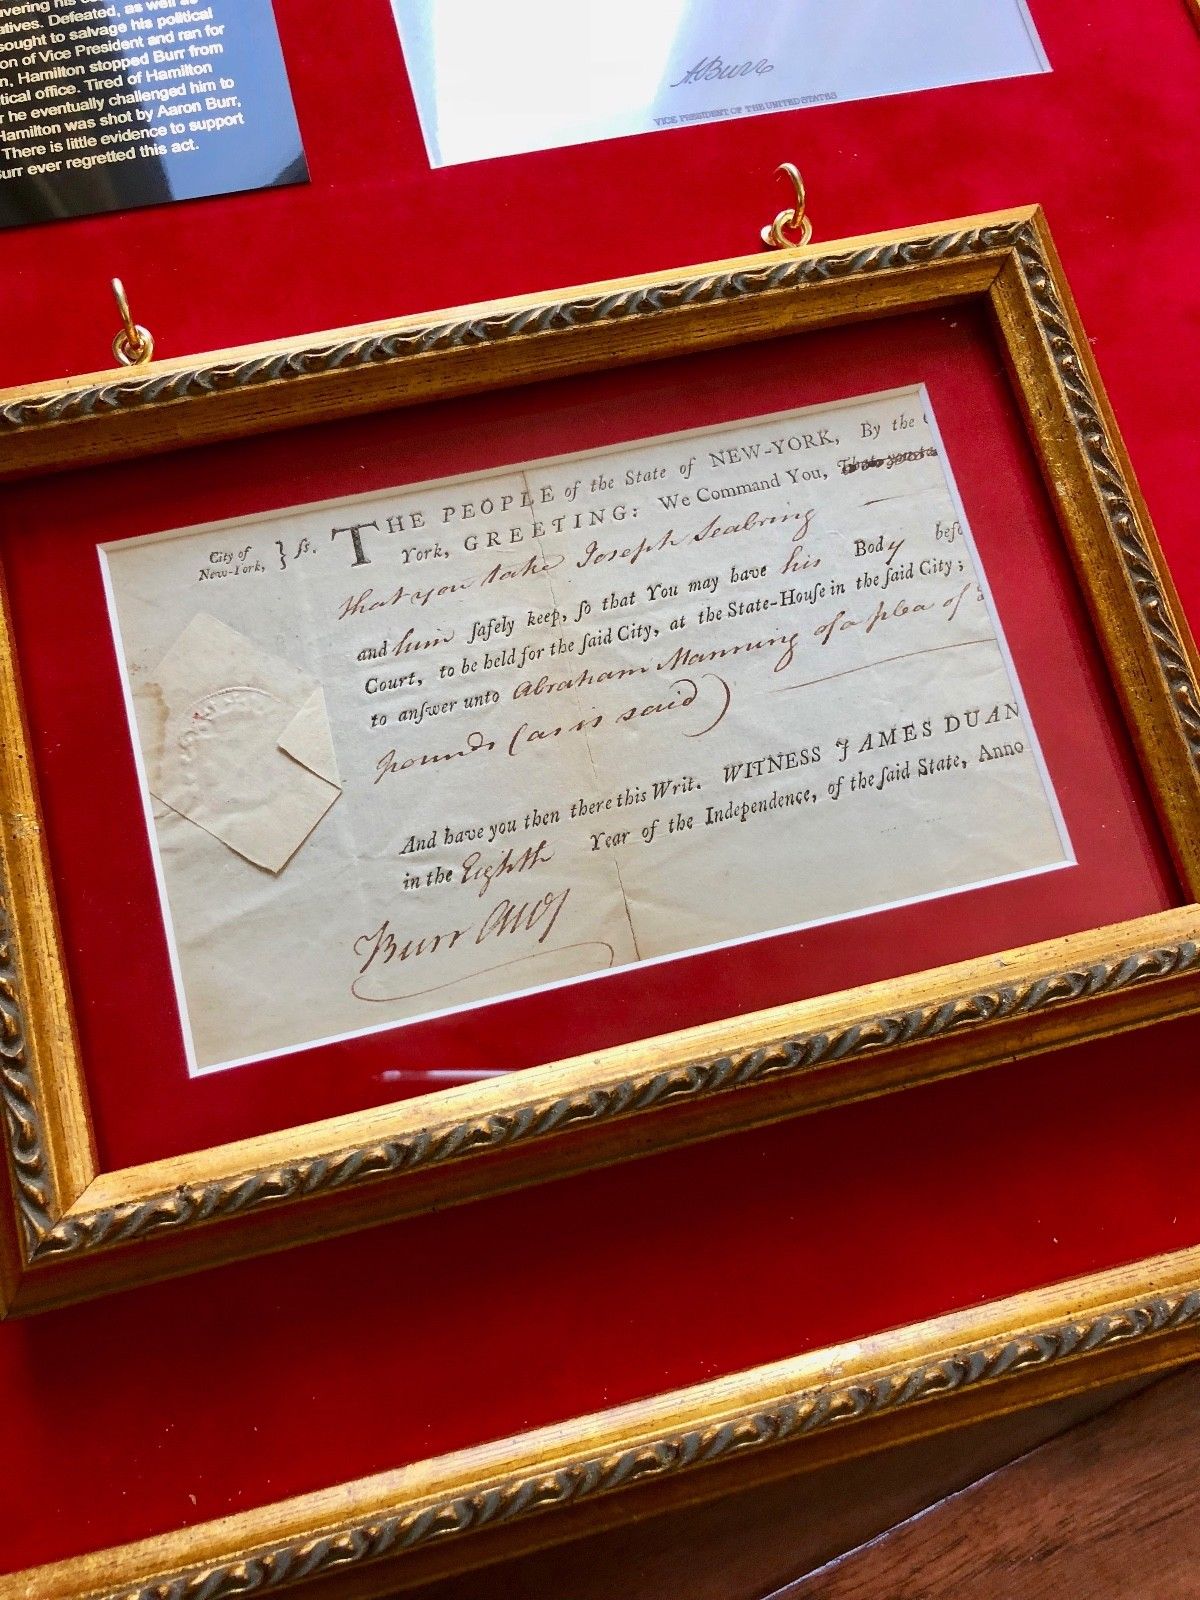 vering his
atives. Defeated, as well as
sought to salvage his political
on of Vice President and ran for
n, Hamilton stopped Burr from
tical office. Tired of Hamilton
r he eventually challenged him to
Hamilton was shot by Aaron Burr,
There is little evidence to support
Burr ever regretted this act.
A. Burr
VICE PRESIDENT OF THE UNITED STATES
City of
New-York, } ſs.
THE PEOPLE of the State of NEW-YORK, By the
York, GREETING: We Command You,
that you take Joseph Seabring
and him ſafely keep, ſo that You may have his Body befo
Court, to be held for the ſaid City, at the State-Houſe in the ſaid City;
to anſwer unto Abraham Manning of a plea of
pounds (as is said)
And have you then there this Writ. WITNESS JAMES DUAN
in the Eighth Year of the Independence, of the ſaid State, Anno
Burr Atty